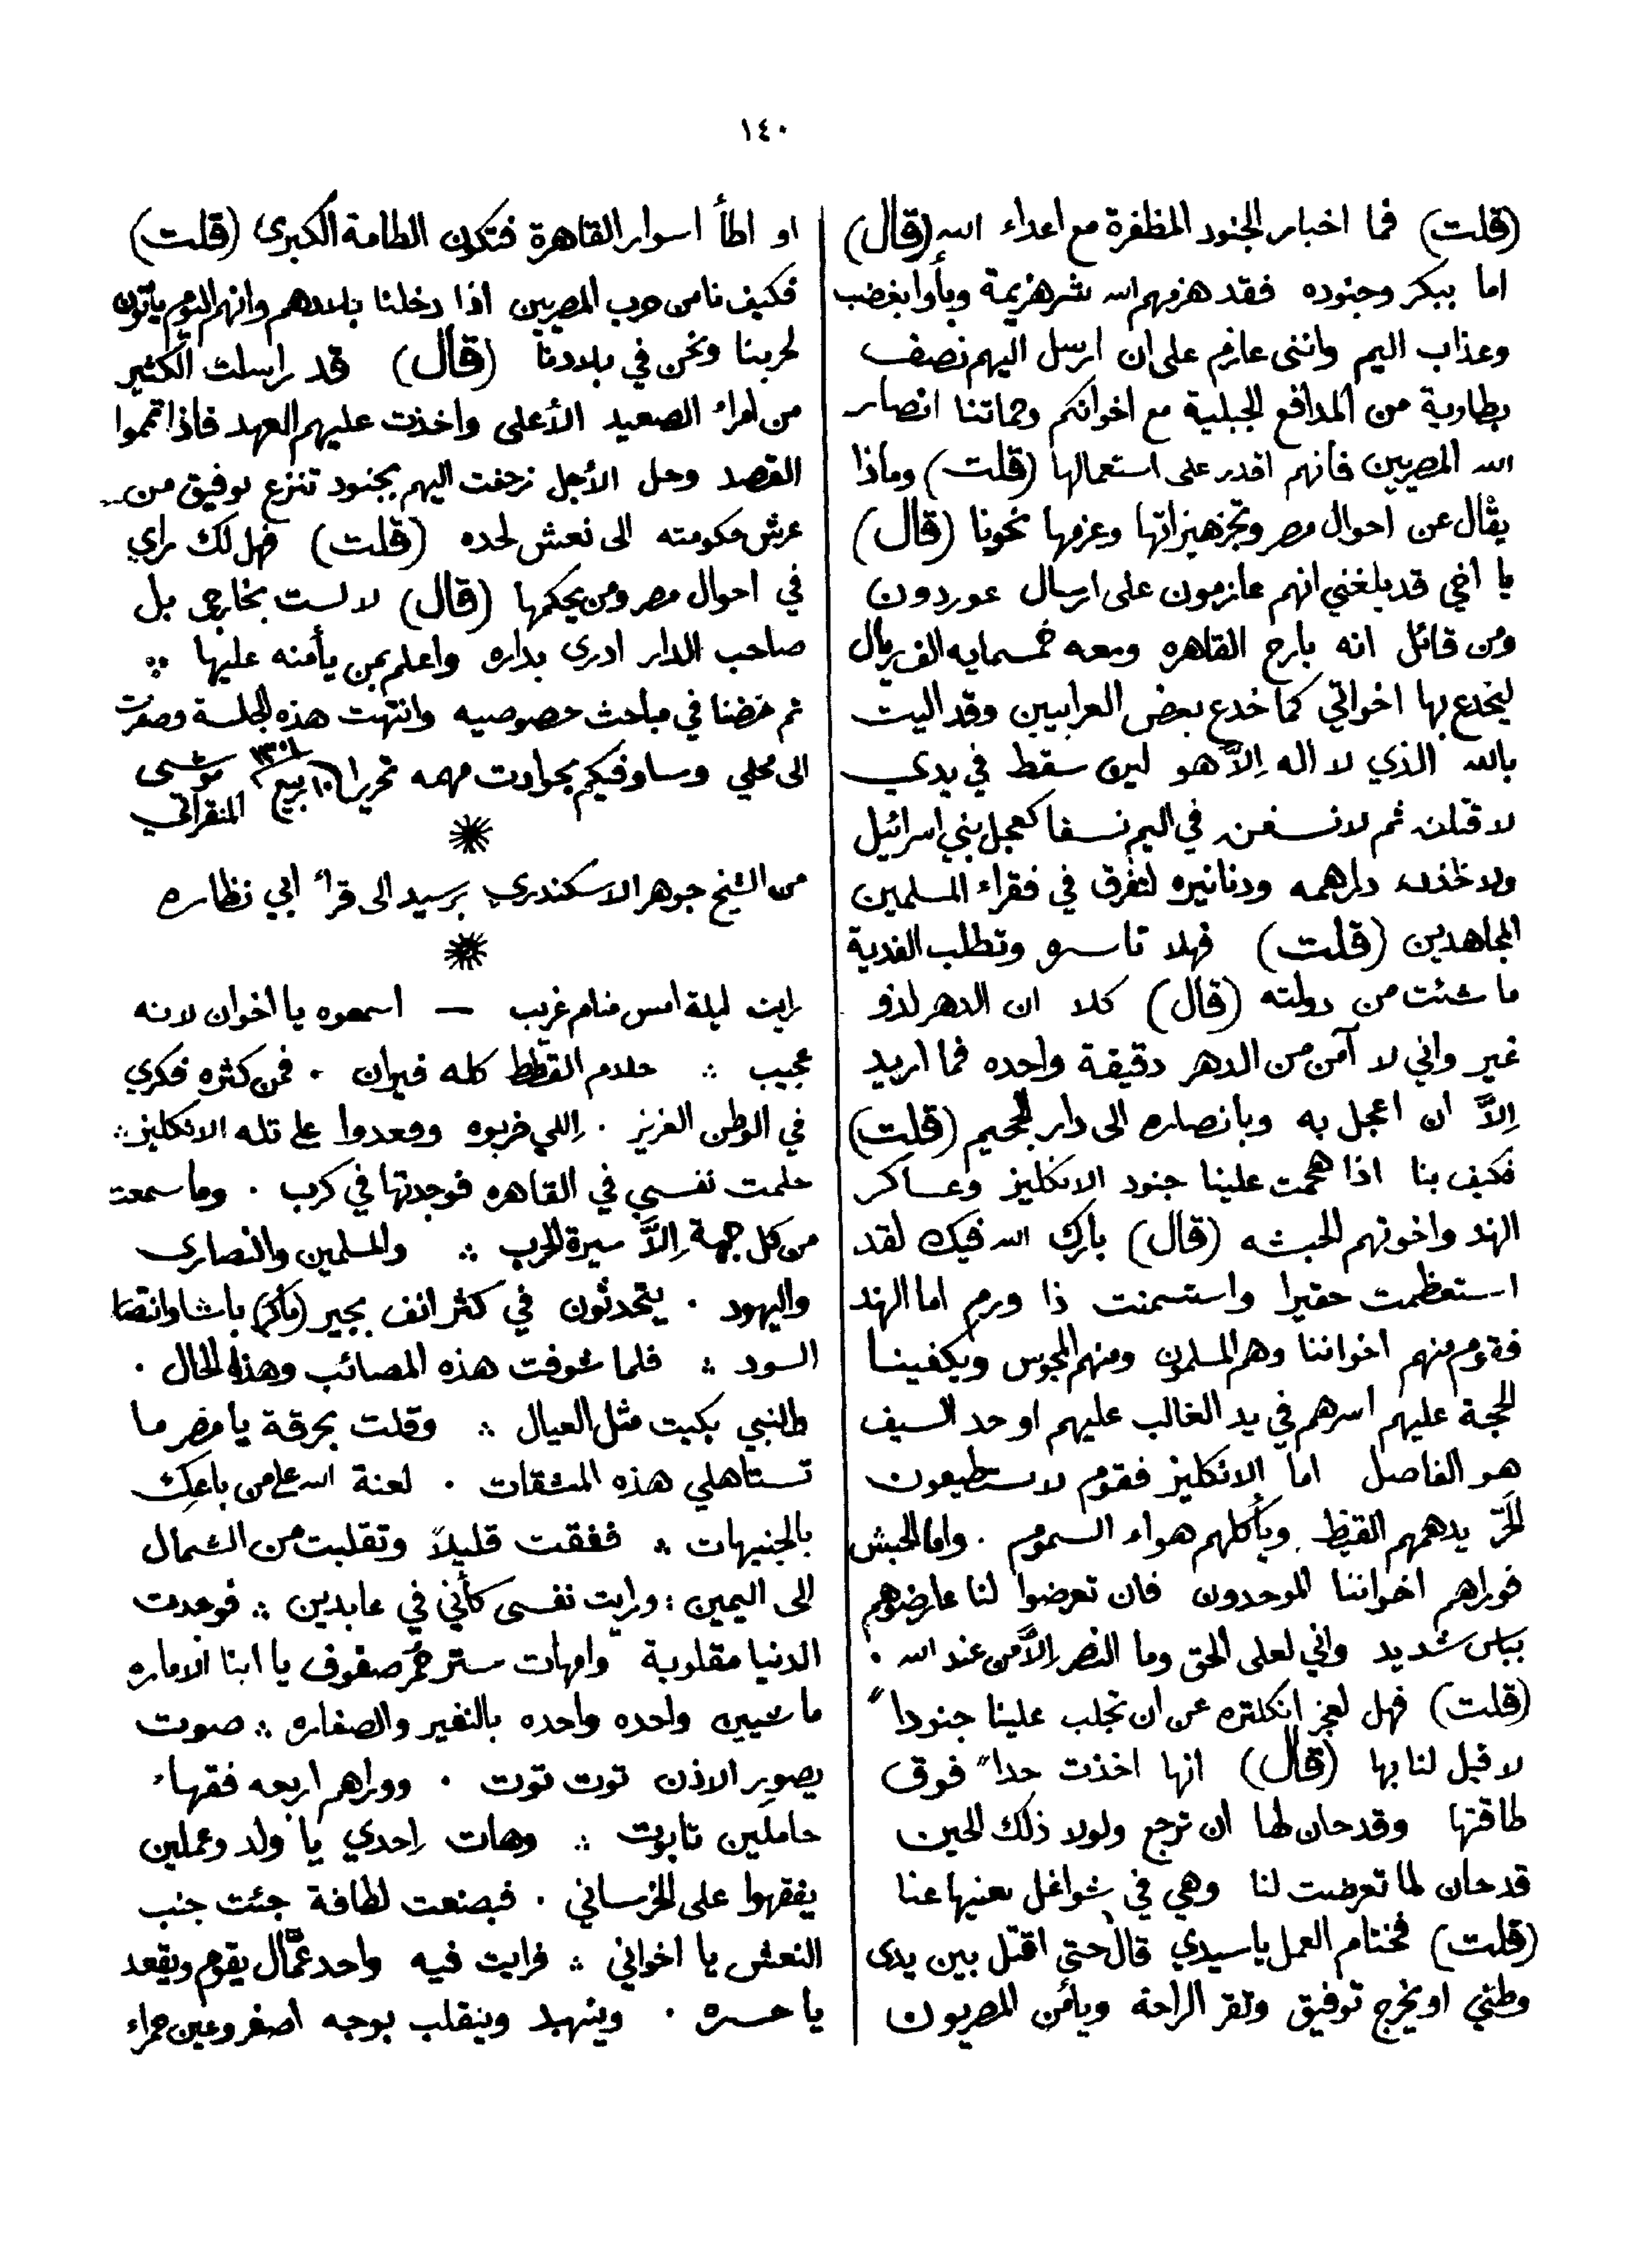 ١٤٠
(قلت) فما اخبار الجنود المظفرة مع اعداء الله (قال)
اما بيكر وجنوده فقد هزمهم الله شر هزيمة وبأوا بغضب
وعذاب اليم وانني عازم على ان ارسل اليهم نصف
بطارية من المدافع الجبلية مع اخوانكم وحماتنا انصار
الله المصريين فانهم اقدر على استعمالها (قلت) وماذا
يقال عن احوال مصر وتجزهيزاتها وعزمها نحونا (قال)
يا اخي قد بلغني انهم عازمون على ارسال عوردون
ومن قائل انه بارح القاهره ومعه خمسمايه الف ريال
ليخدع بها اخواتي كما خدع بعض العرابيين وقد اليت
بالله الذي لا اله إلاَّ هو لين سقط في يدي
لاقتلنه ثم لانسفنه في اليم نسفا كعجل بني اسرائيل
ولاخذن دراهمه ودنانيره لتفرق في فقراء المسلمين
المجاهدين (قلت) فهلا تاسره وتطلب الفدية
ما شئت من دولته (قال) كلا ان الدهر لذو
غير واني لا آمن من الدهر دقيقة واحده فما اريد
إلاَّ ان اعجل به وبانصاره الى دار الجحيم (قلت)
فكيف بنا اذا هجمت علينا جنود الانكليز وعساكر
الهند واخوتهم الحبشه (قال) بارك الله فيك لقد
استعظمت حقيرا واستسمنت ذا ورم اما الهند
فقوم منهم اخواننا وهم المسلمون ومنهم المجوس ويكفينا
الحجة عليهم اسرهم في يد الغالب عليهم او حد السيف
هو الفاصل اما الانكليز فقوم لا يستطيعون
الحَرّ يدهمهم القيظ ويأكلهم هواء السموم . واما الحبش
فوراهم اخواننا الموحدون فان تعرضوا لنا عارضوهم
بباس شديد واني لعلى الحق وما النصر إلاَّ من عند الله .
(قلت) فهل لعجز انكلتره عن ان تجلب علينا جنوداً
لا قبل لنا بها (قال) انها اخذت حداً فوق
طاقتها وقد حان لها ان ترجع ولولا ذلك الحين
قد حان لما تعرضت لنا وهي في شواغل تعنيها عنا
(قلت) فختام العمل يا سيدي قال حتي اقتل بين يدى
وطني او يخرج توفيق وتقر الراحة ويأمن المصريون
او اطأ اسوار القاهرة فتكون الطامة الكبرى (قلت)
فكيف نامن حرب المصريين اذا دخلنا بلادهم وانهم اليوم يأتون
لحربنا ونحن في بلادنا (قال) قد راسلت الكثير
من امراء الصعيد الأعلى واخذت عليهم العهد فاذا تمموا
القصد وحل الأجل زحفت اليهم بجنود تنزع توفيق من
عرش حكومته الى نعش لحده (قلت) فهل لك راي
في احوال مصر ومن يحكمها (قال) لا لست بخارجي بل
صاحب الدار ادرى بداره واعلم بمن يأمنه عليها
ثم خضنا في مباحث خصوصيه وانتهت هذه الجلسة وصفرت
الى محلي وساوفيكم بحوادث مهمه تحريرا ١٠ ربيع ١٣٠١ موسى المنقراتي
من الشيخ جوهر الاسكندري برسيد الى قراء ابي نظاره
رايت ليلة امس منام غريب — اسمعوه يا اخوان لانه
عجيب ؞ حلام القطط كله فيران . فمن كثره فكري
في الوطن العزيز . إللي خربوه وقعدوا على تله الانكليز ؞
حلمت نفسي في القاهره فوجدتها في كرب . وما سمعت
من كل جهة إلاَّ سيرة الحرب ؞ والمسلمين والنصارى
واليهود . يتحدثون في كثر انف بجير (باكر) باشا وانتصار
السود ؞ فلما شوفت هذه المصائب وهذا الحال .
طالنبي بكيت مثل العيال ؞ وقلت بحرقة يا مصر ما
تستاهلي هذه المشقات . لعنة الله على من باعك
بالجنيهات ؞ ففقت قليلاً وتقلبت من الشمال
الى اليمين : ورايت نفسى كأني في عابدين ؞ فوجدت
الدنيا مقلوبة وامهات ستر حمر صفوف يا ابنا الاماره
ماشيين واحده واحده بالنفير والصفاره ؞ صوت
يصوِر الاذن توت توت . ووراهم اربعه فقهاء
حاملين تابوت ؞ وهات إحدي يا ولد وعملين
يفقهوا على الخرساني . فبصنعت لطافة جئت جنب
النعش يا اخواني ؞ فرايت فيه واحد عمَّال يقوم ويقعد
يا حسره . ويتنهد وينقلب بوجه اصفر وعين حمراء